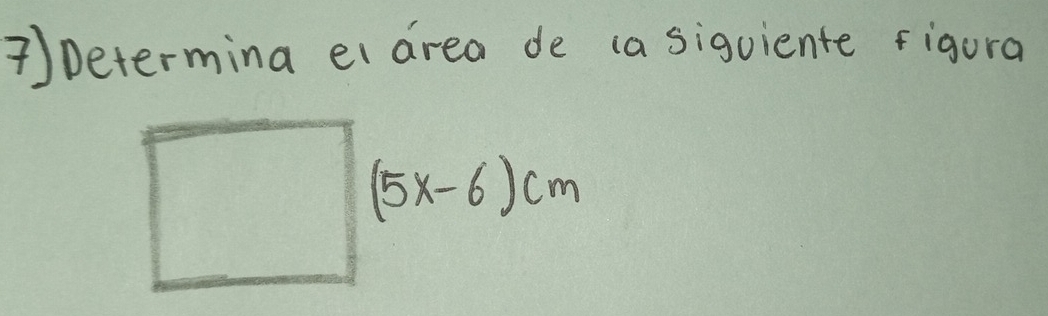 7) Determina el área de la siguiente figura
(5x-6)cm